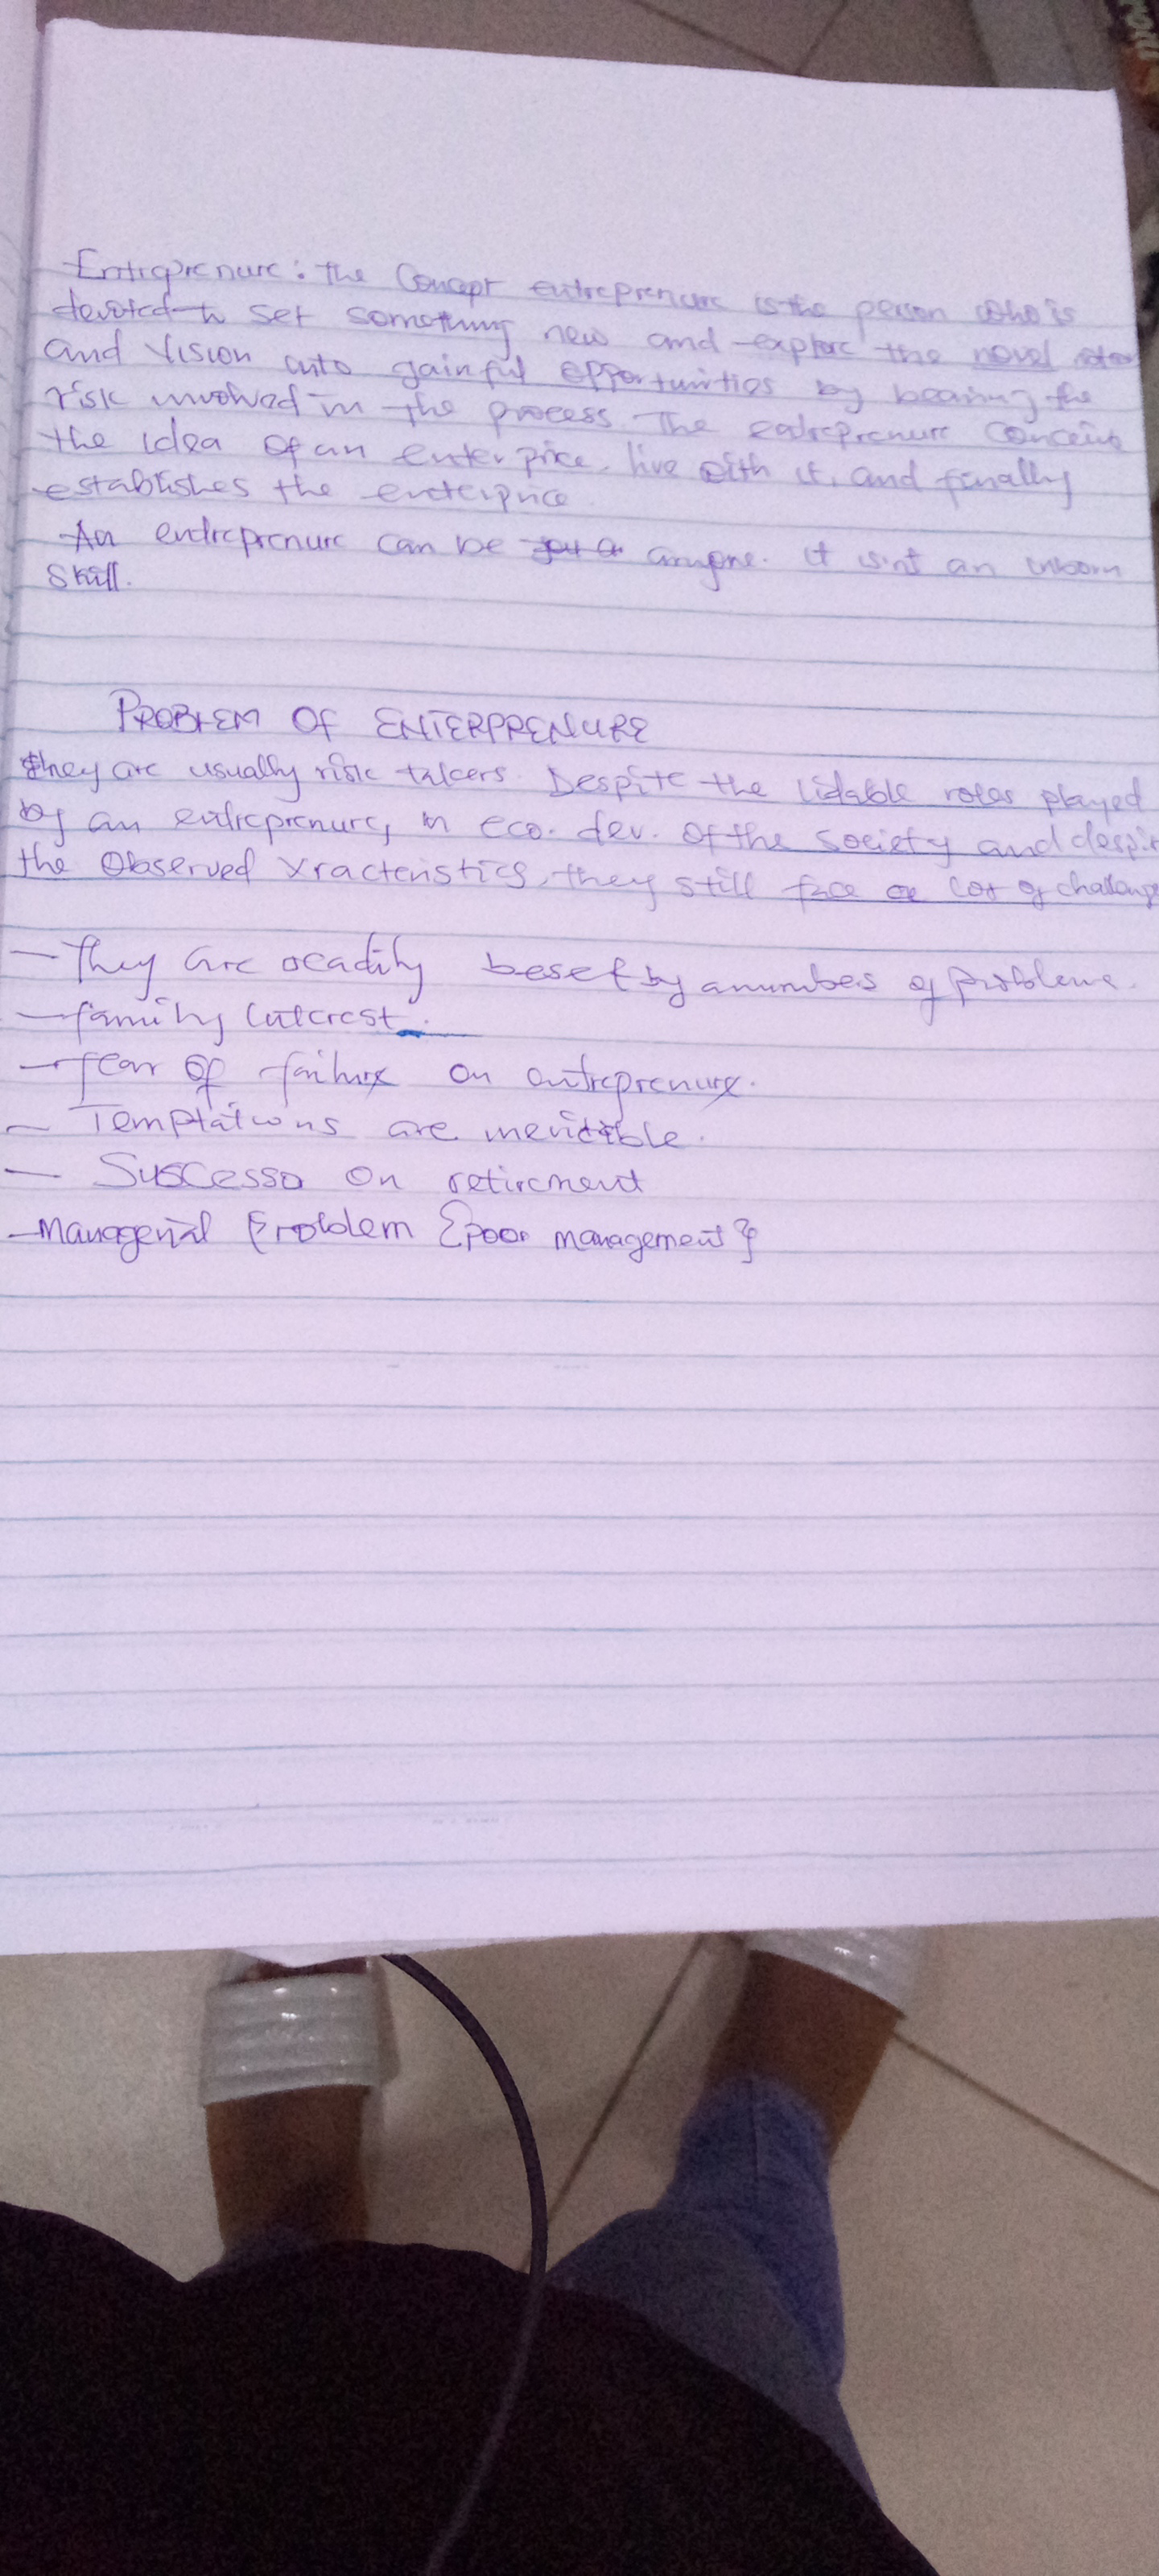 Entreprenure: the Concept entreprenure is the person who is
devoted to set something new and explore the novel
and vision into gainful opportunities by bearing the
risk involved in the process. The entreprenure conceive
the idea of an enterprice, live with it, and finally
establishes the enterprice
An entreprenure can be anyone. it isn't an inborn
Skill.
PROBLEM OF ENTERPRENURE
they are usually risk takers. Despite the lidable roles played
by an entreprenure, in eco. dev. of the society and despit
the Observed Xracteristics, they still face a lot of challenge
- They are readily beset by a numbers of problems.
- family interest.
- fear of failure on entreprenure.
- Temptations are inevitable.
- Suscesso on retirement
- Managerial Problem {poor management}